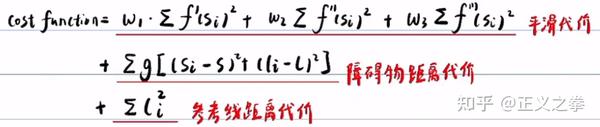 cost function = w₁·Σf'(sᵢ)² + w₂Σf''(sᵢ)² + w₃Σf'''(sᵢ)² 平滑代价
+ Σg[(sᵢ-s)²+(lᵢ-l)²] 障碍物距离代价
+ Σlᵢ² 参考线距离代价
知乎 @正义之拳